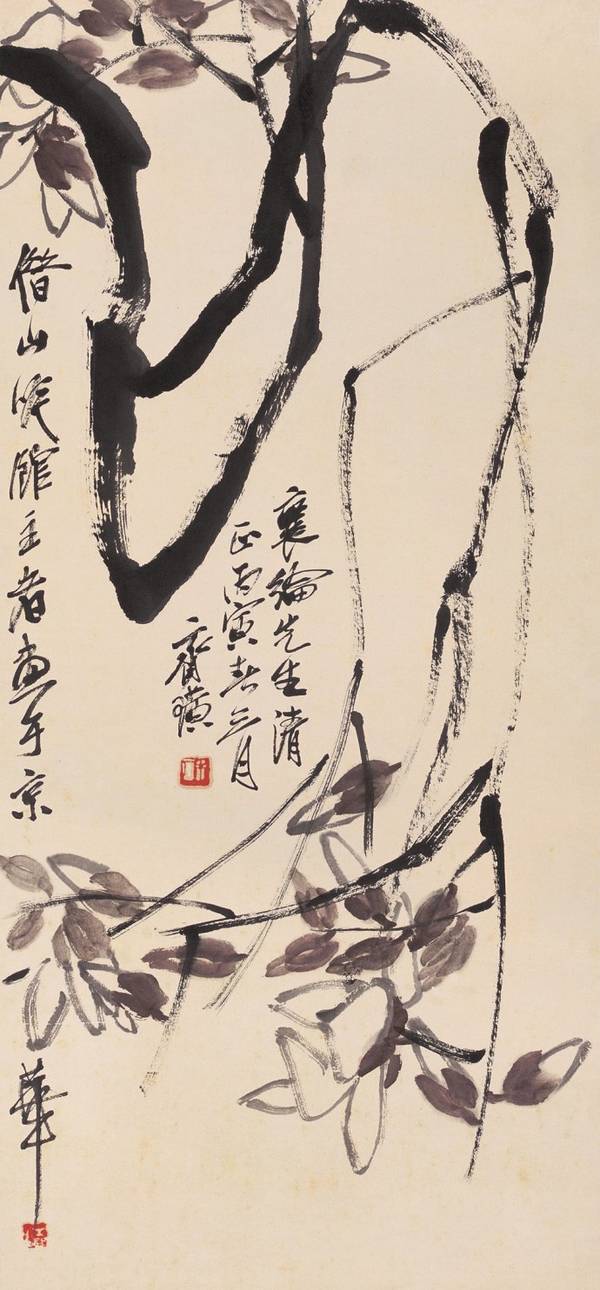 襄綸先生清
正丙寅春三月
齊璜
借山唫館主者畫于京
華